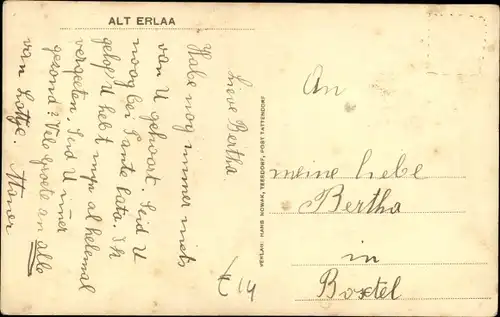 ALT ERLAA
Lieve Bertha.
Habe nog immer niets
van U gehoort. Seid U
noog bei Tante Cato. Ih
gelof U hebt mijn al helemal
vergeeten. Seid U imer
gesond? Vele groete an alle
van Lottje.
VERLAG: HANS NOWAK, TEESDORF, POST TATTENDORF
An
meine liebe
Bertha
in
Boxtel
€ 14